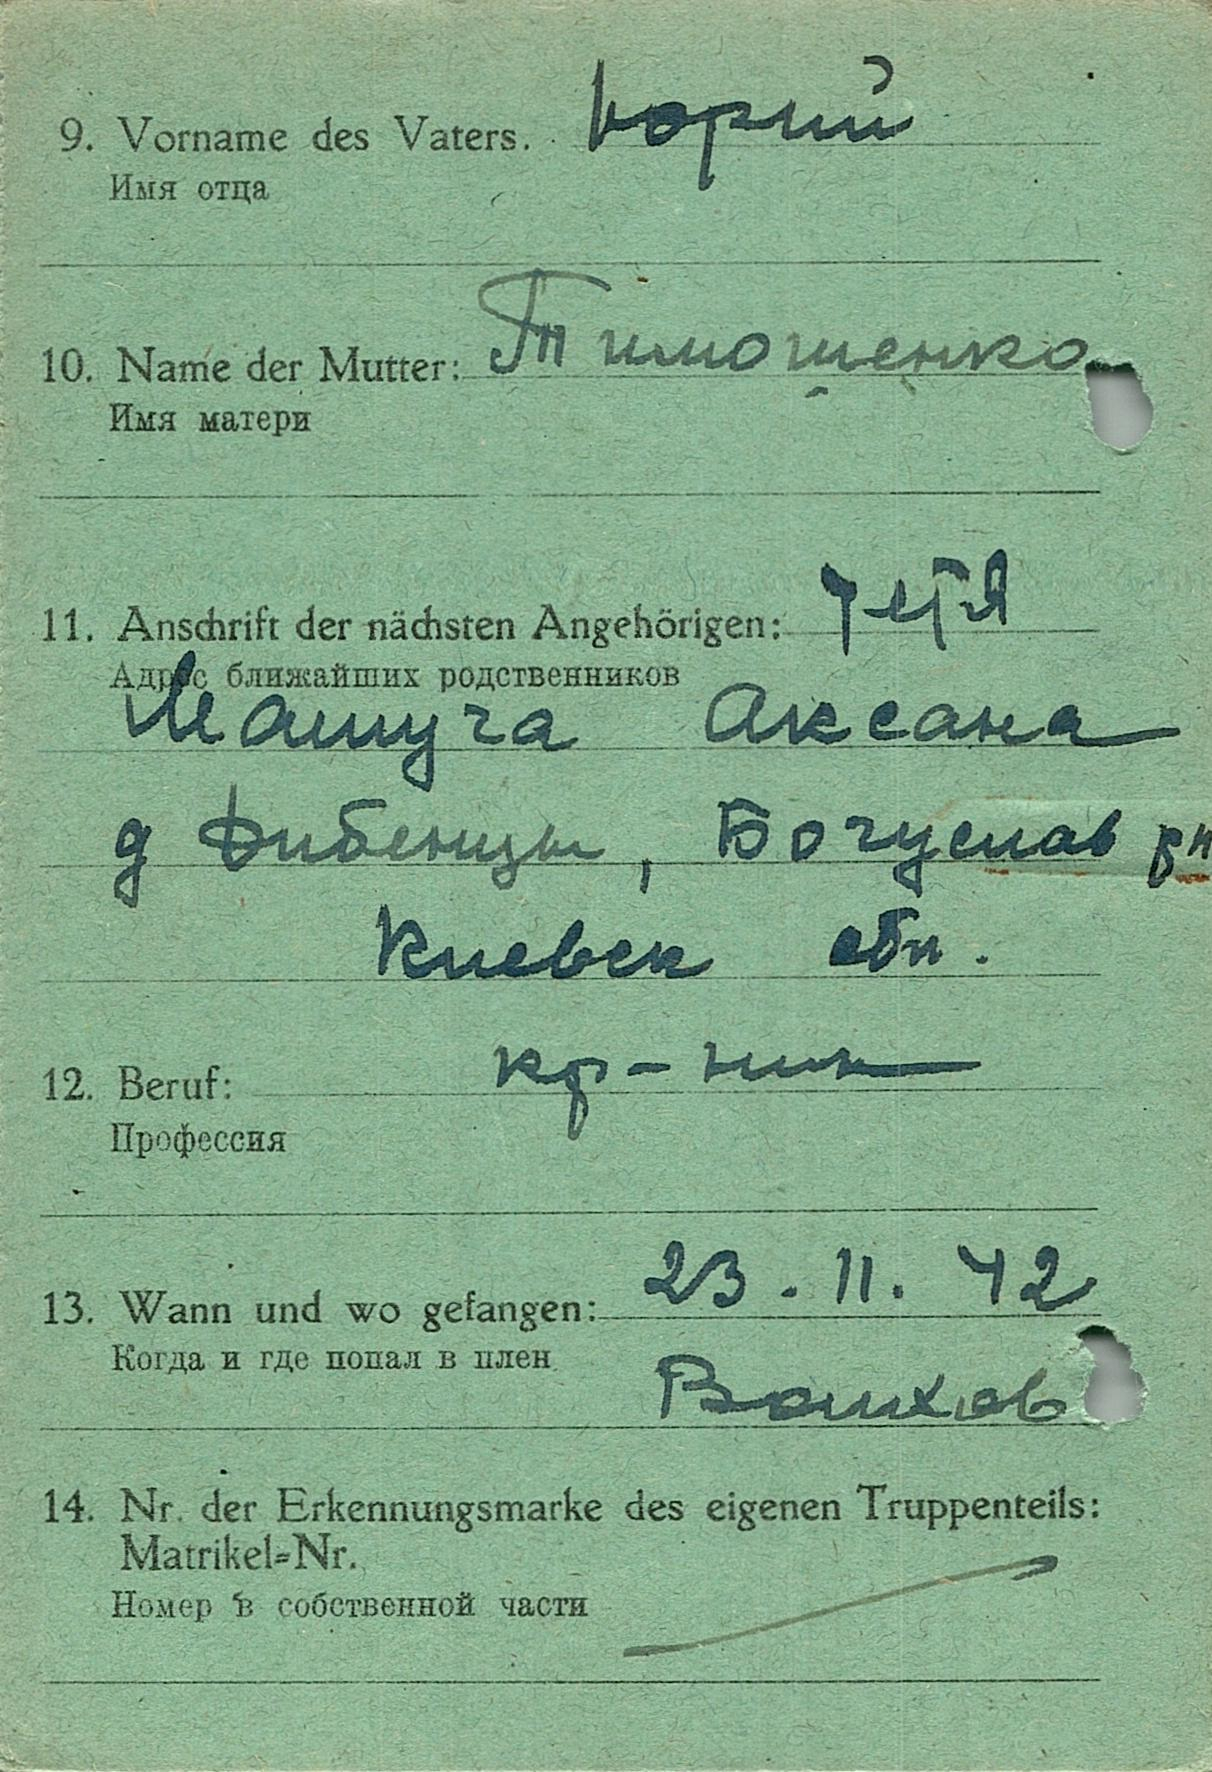 9. Vorname des Vaters. Юрий
Имя отца
10. Name der Mutter: Тимошенко
Имя матери
11. Anschrift der nächsten Angehörigen: тетя
Адрес ближайших родственников
Машуга Аксана
д Дибенцы, Богуслав рн
Киевск обл.
12. Beruf: кр-ник
Профессия
13. Wann und wo gefangen: 23.11.42
Когда и где попал в плен
Волхов
14. Nr. der Erkennungsmarke des eigenen Truppenteils:
Matrikel=Nr.
Номер в собственной части